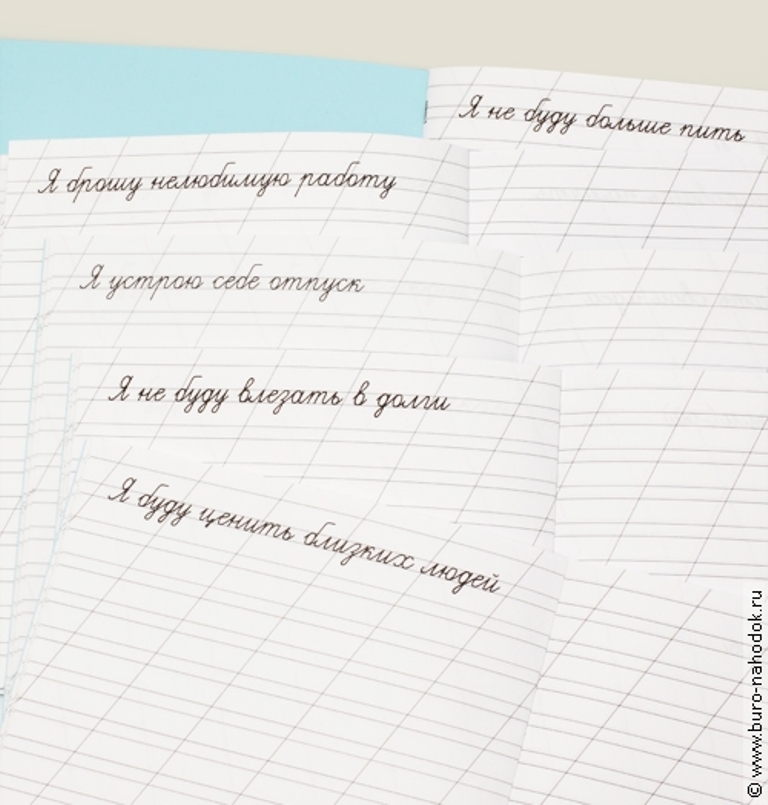 Я не буду больше пить
Я брошу нелюбимую работу
Я устрою себе отпуск
Я не буду влезать в долги
Я буду ценить близких людей
© www.buro-nahodok.ru